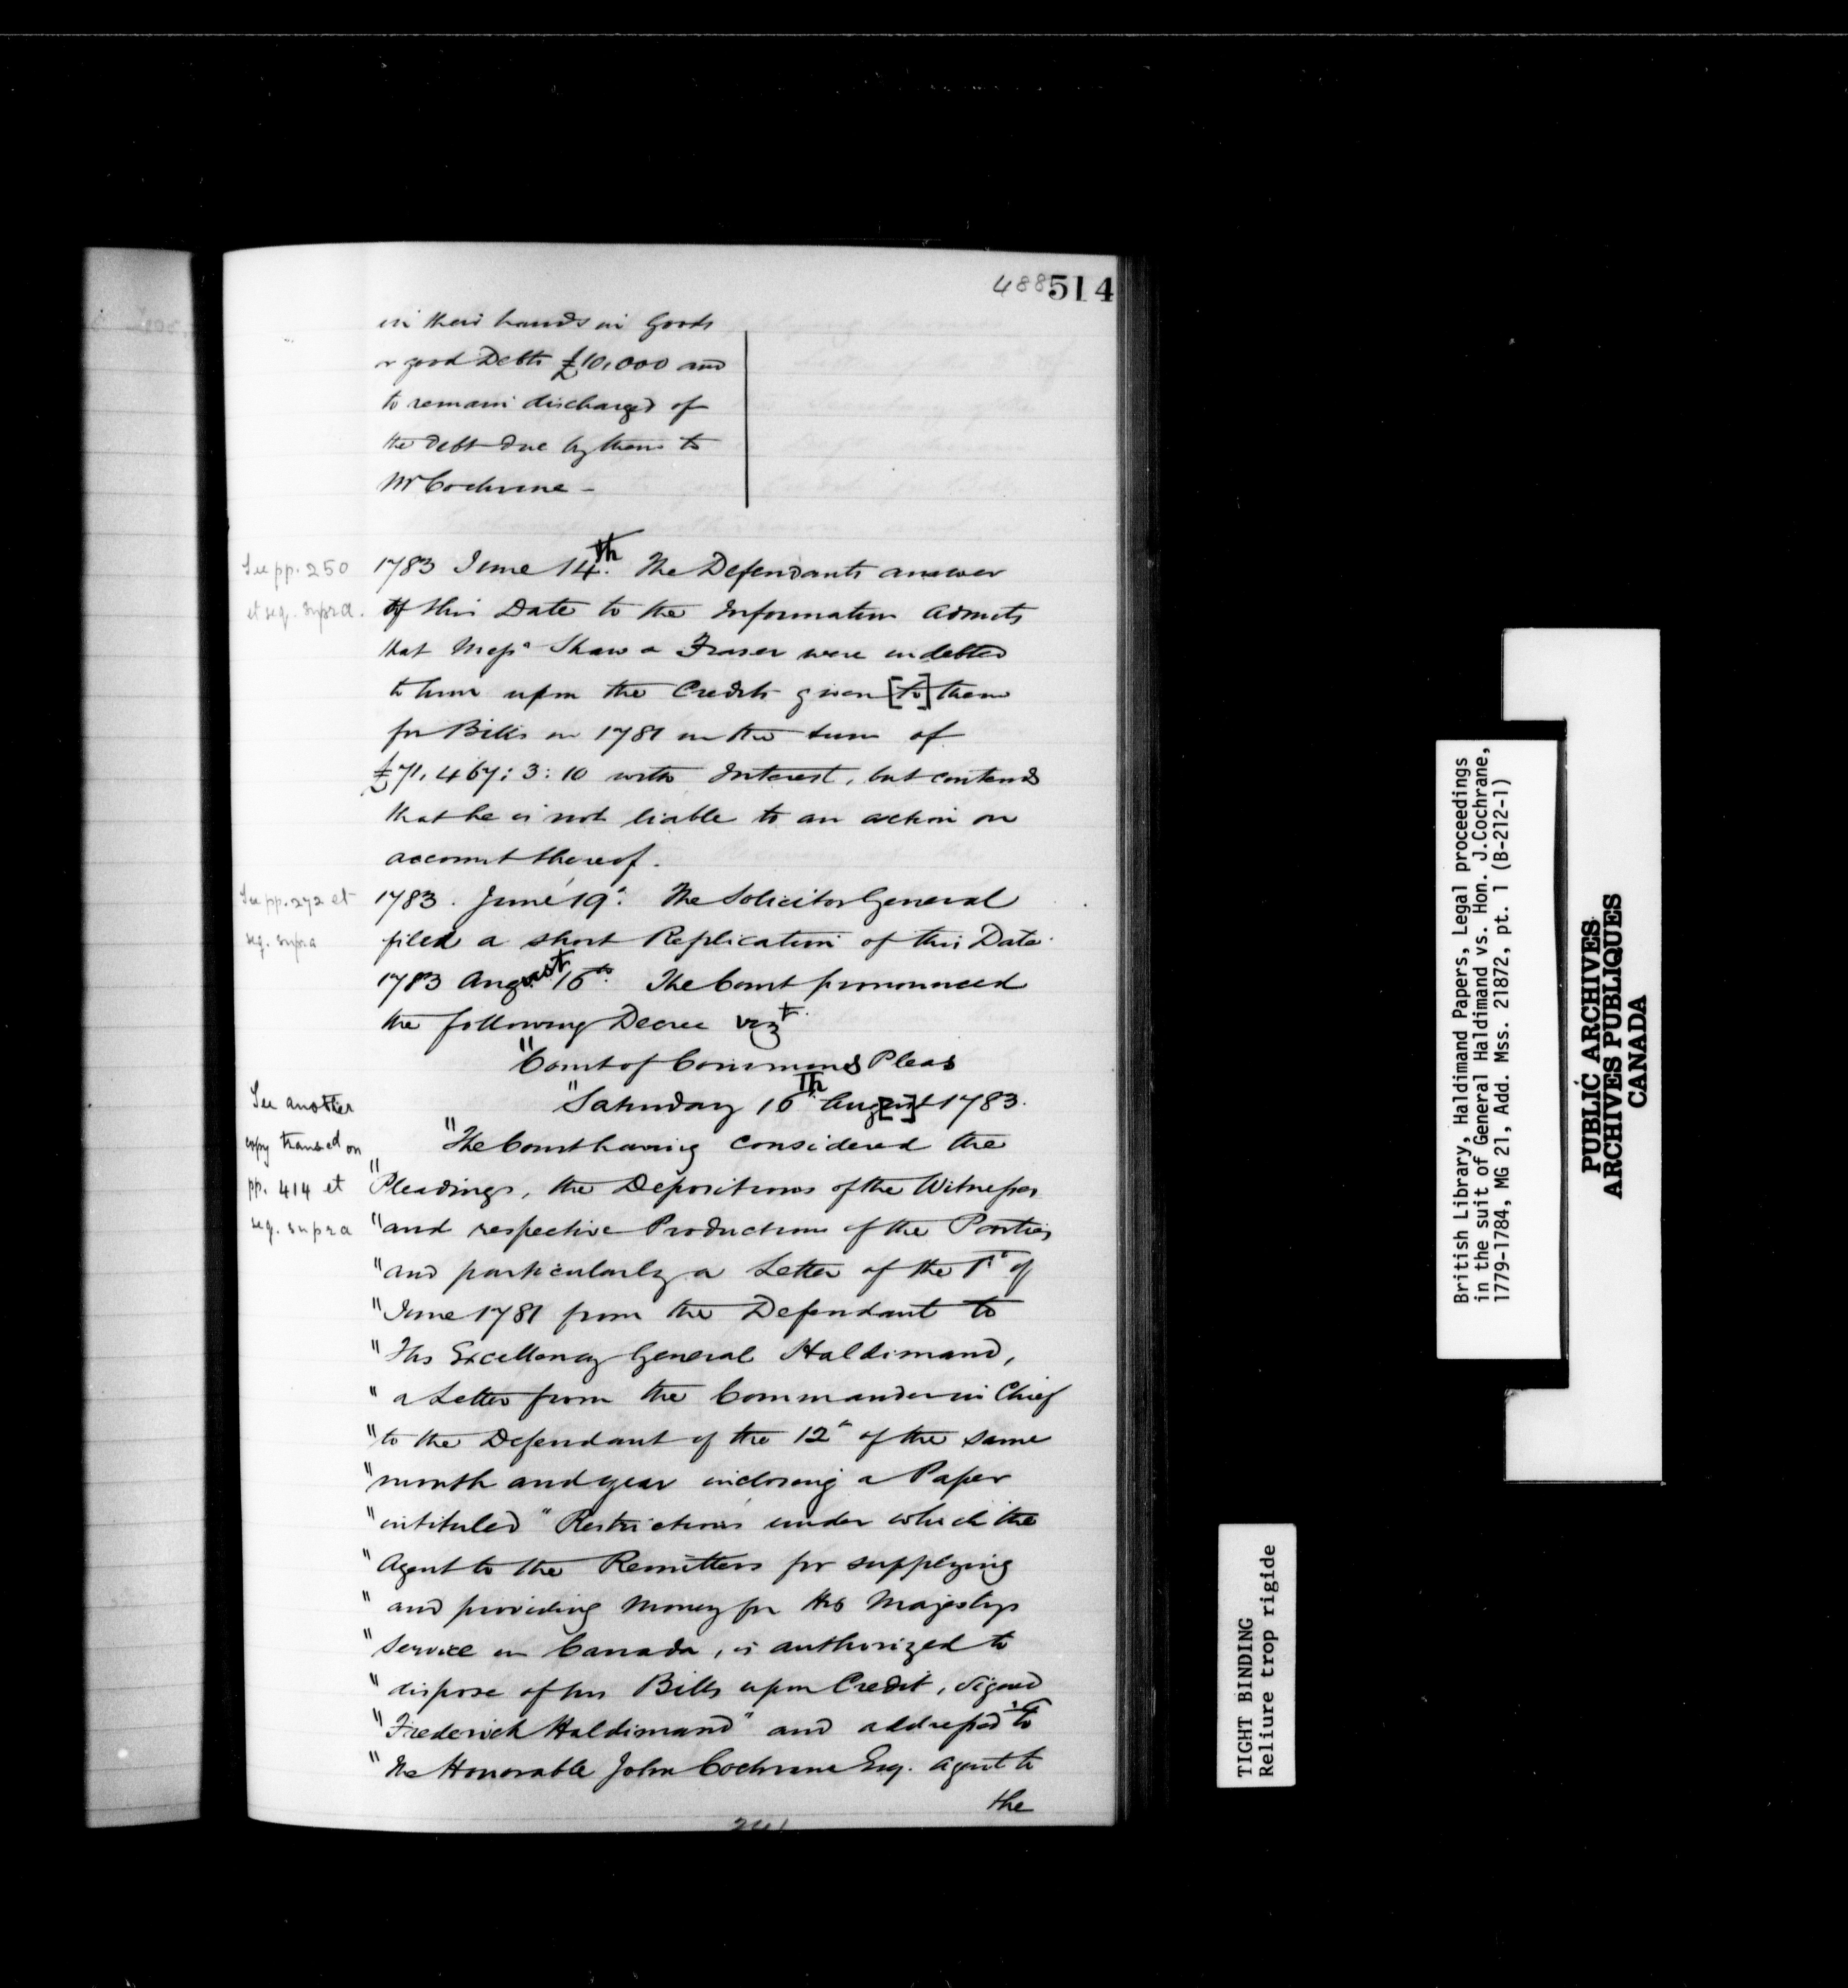 488 514
in their hands in Goods
or good Debts £10,000 and
to remain discharged of
the debt due by them to
Mr Cochrane -
See pp. 250
et seq. supra.
1783 June 14th. The Defendants answer
of this Date to the Information admits
that Messrs Shaw & Fraser were indebted
to him upon the Credits given [to] them
for Bills in 1781 in the sum of
£71,467:3:10 with Interest, but contends
that he is not liable to an action on
account thereof.
See pp. 272 et
seq. supra
1783. June 19th. The Solicitor General
filed a short Replication of this Date.
1783 August 16th. The Court pronounced
the following Decree vizt.
"Court of Common Pleas
"Saturday 16th August 1783.
See another
copy transcd on
pp. 414 et
seq. supra
"The Court having considered the
"Pleadings, the Depositions of the Witnesses
"and respective Productions of the Parties
"and particularly a Letter of the 1st of
"June 1781 from the Defendant to
"His Excellency General Haldimand,
"a Letter from the Commander in Chief
"to the Defendant of the 12th of the same
"month and year inclosing a Paper
"intituled "Restrictions under which the
"Agent to the Remitters for supplying
"and providing Money for His Majestys
"Service in Canada, is authorized to
"dispose of his Bills upon Credit, signed
"Frederick Haldimand" and addressed "to
"The Honorable John Cochrane Esq. agent to
the
British Library, Haldimand Papers, Legal proceedings
in the suit of General Haldimand vs. Hon. J.Cochrane,
1779-1784, MG 21, Add. Mss. 21872, pt. 1 (B-212-1)
PUBLIC ARCHIVES
ARCHIVES PUBLIQUES
CANADA
TIGHT BINDING
Reliure trop rigide